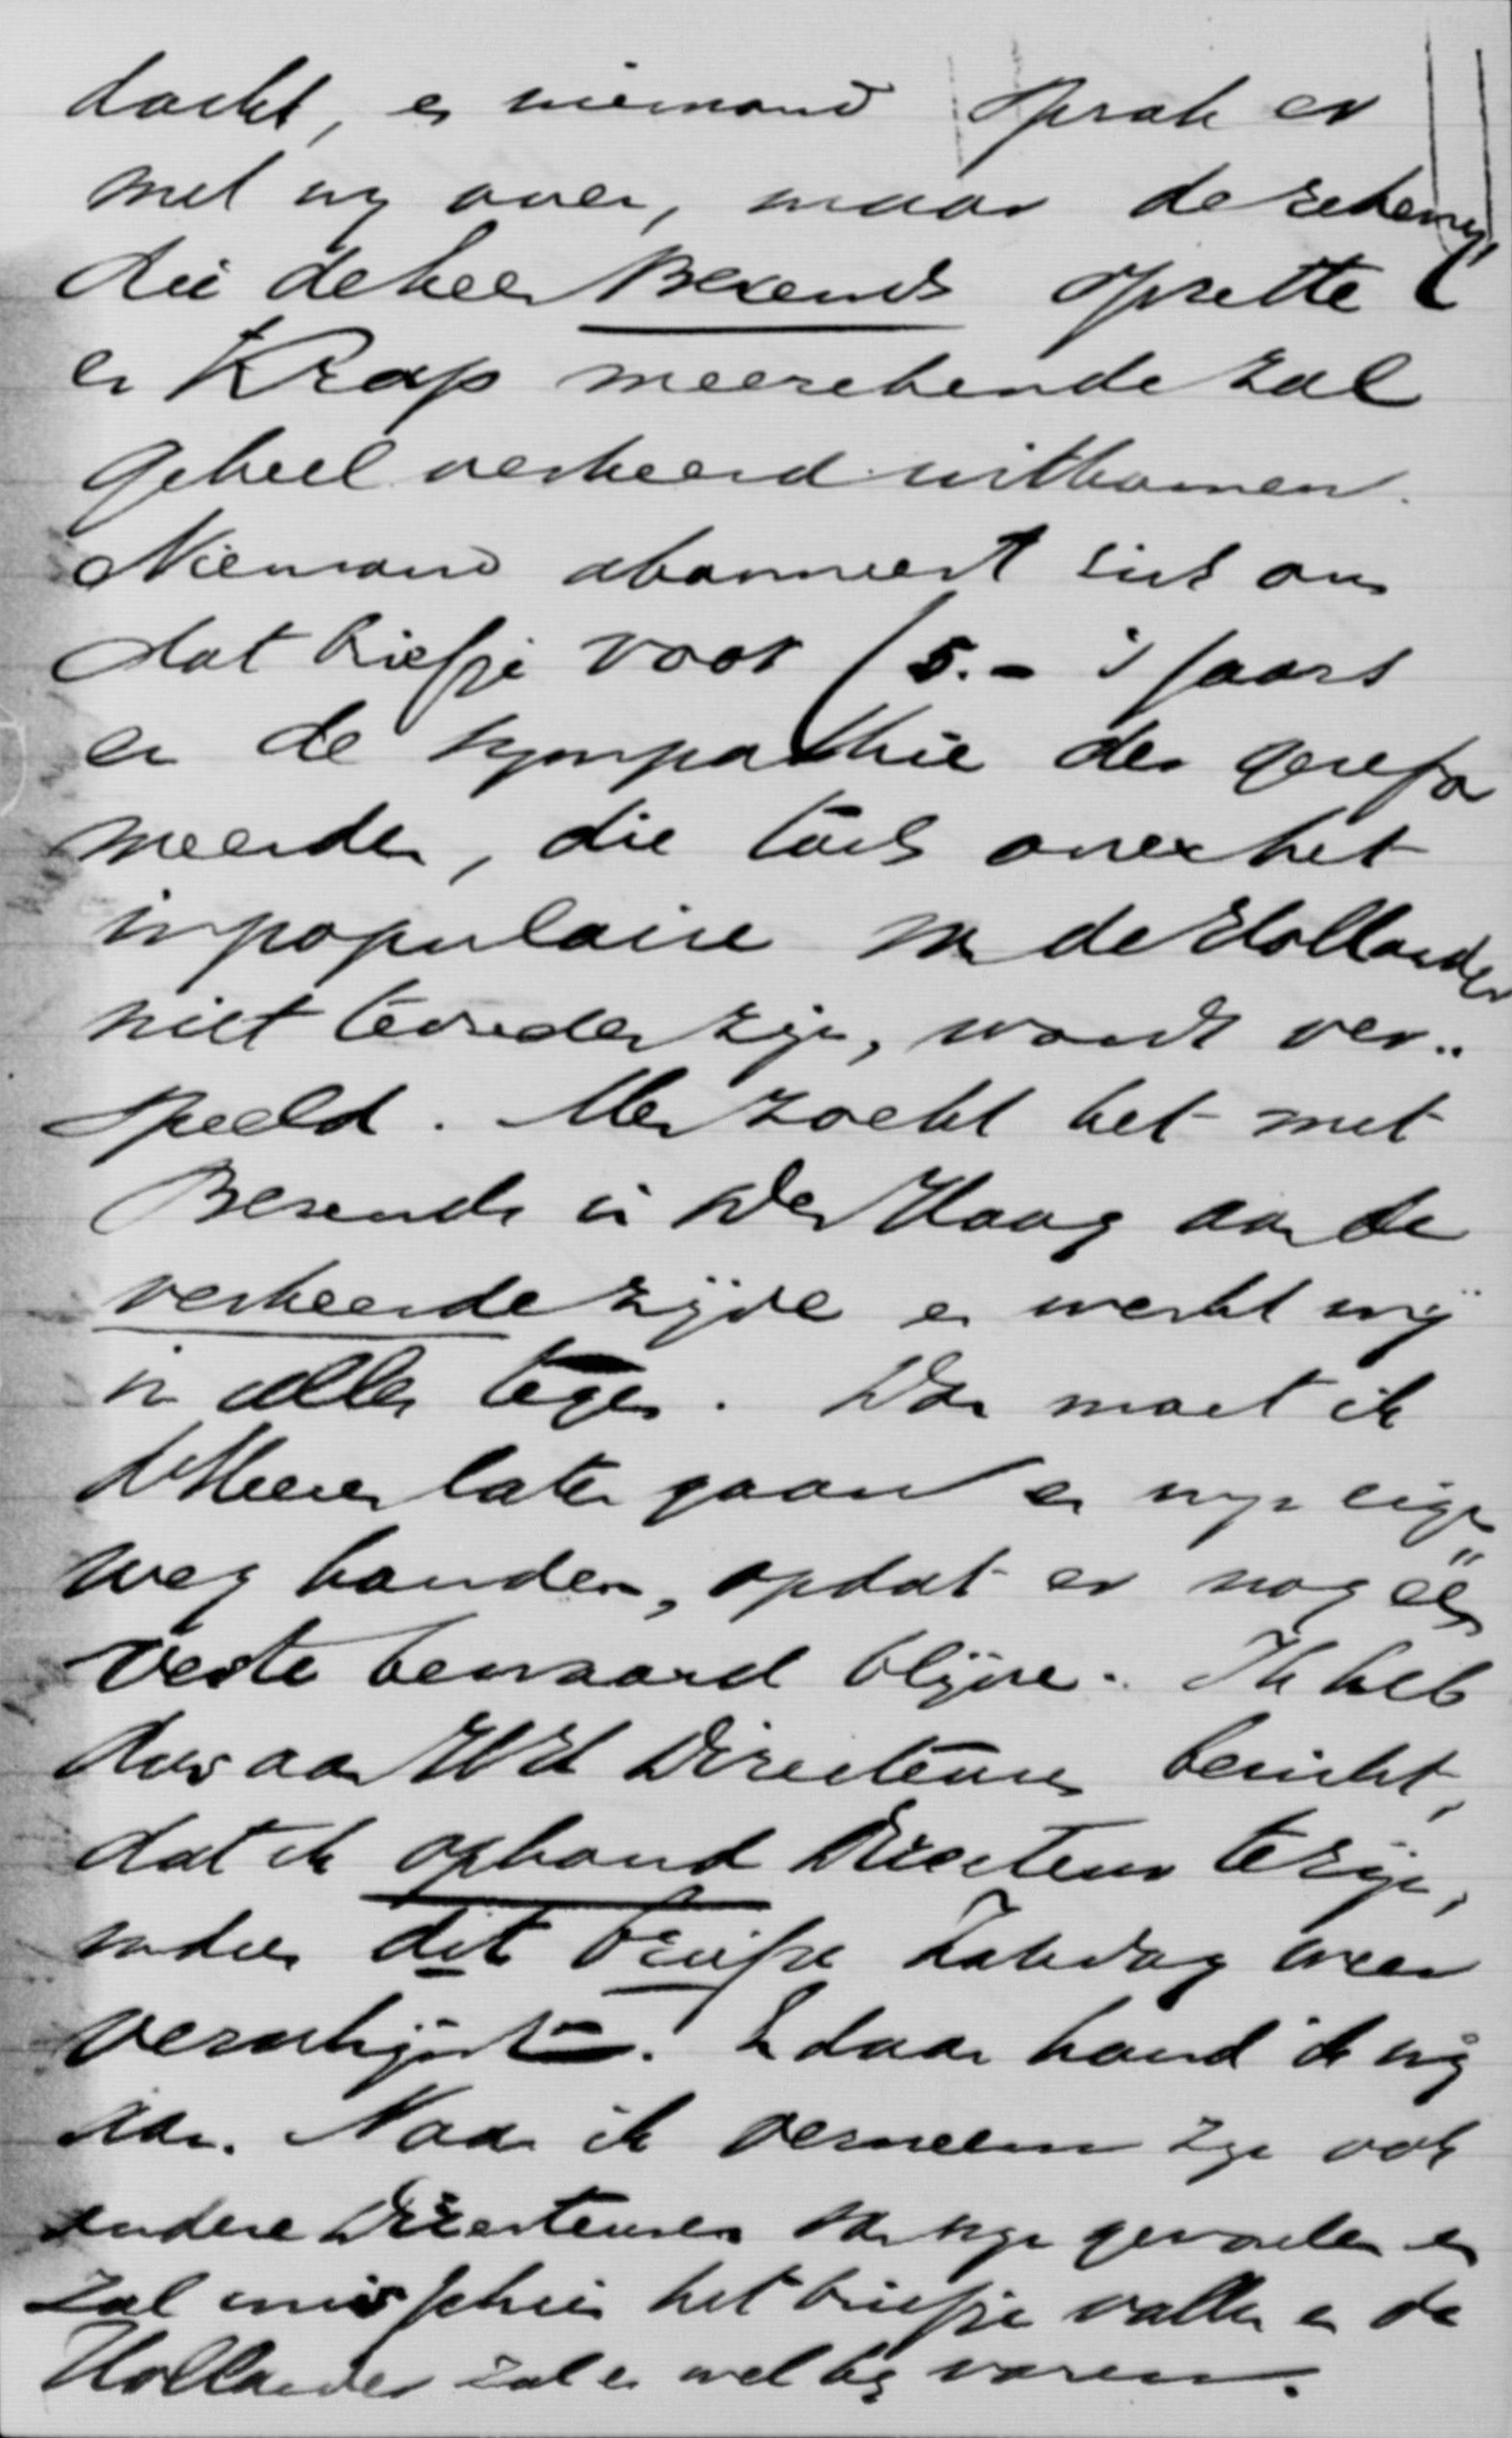 dacht, en niemand sprak er
met mij over, maar de rekening
die de heer Berends opzette
en Krap meerekende zal
geheel verkeerd uitkomen.
Niemand abonneert zich om
dat briefje voor f 5.- 's jaars
en de sympathie der gerefor
meerden, die toch over het
impopulaire van de Hollander
niet tevreden zijn, wordt ver..
speeld. Men zoekt het met
Berends in Den Haag aan de
verkeerde zijde en werkt mij
in alles tegen. Dan moet ik
de Heeren laten gaan en mijn eigen
weg houden, opdat er nog één
veste bewaard blijve. Ik heb
dus aan WEd Directeuren bericht,
dat ik ophoud Directeur te zijn,
indien dit briefje Zaterdag weer
verschijnt. En daar houd ik mij
aan. Naar ik verneem zijn ook
andere Directeuren van mijn gevoelen en
zal misschien het briefje vallen en de
Hollander zal er wel bij varen.